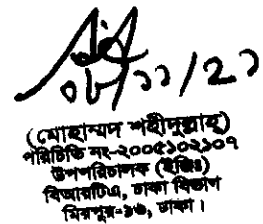 ০৮/১১/২১
(মোহাম্মদ শহীদুল্লাহ্)
পরিচিতি নং-২০০৫১০২১০৭
উপপরিচালক (ইঞ্জিঃ)
বিআরটিএ, ঢাকা বিভাগ
মিরপুর-১৬, ঢাকা।